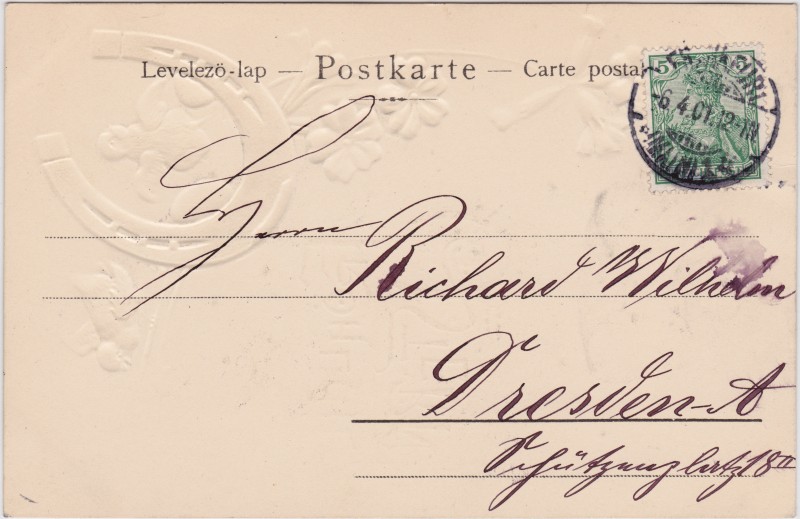 Levelező-lap — Postkarte — Carte postal
5
6.4.01.12-1N
Herrn
Richard Wilhelm
Dresden-A
Schützenplatz 18 II